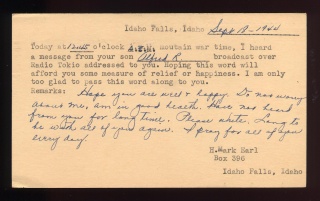 Idaho Falls, Idaho Sept 18-1944
Today at 12:45 o'clock P.M. moutain war time, I heard
a message from your son Alfred R. broadcast over
Radio Tokio addressed to you. Hoping this word will
afford you some measure of relief or happiness. I am only
too glad to pass this word along to you.
Remarks: Hope you are well & happy. Do not worry
about me, am in good health. Have not heard
from you for long time. Please write. Long to
be with all of you again. I pray for all of you
every day.
H. Mark Earl
Box 396
Idaho Falls, Idaho